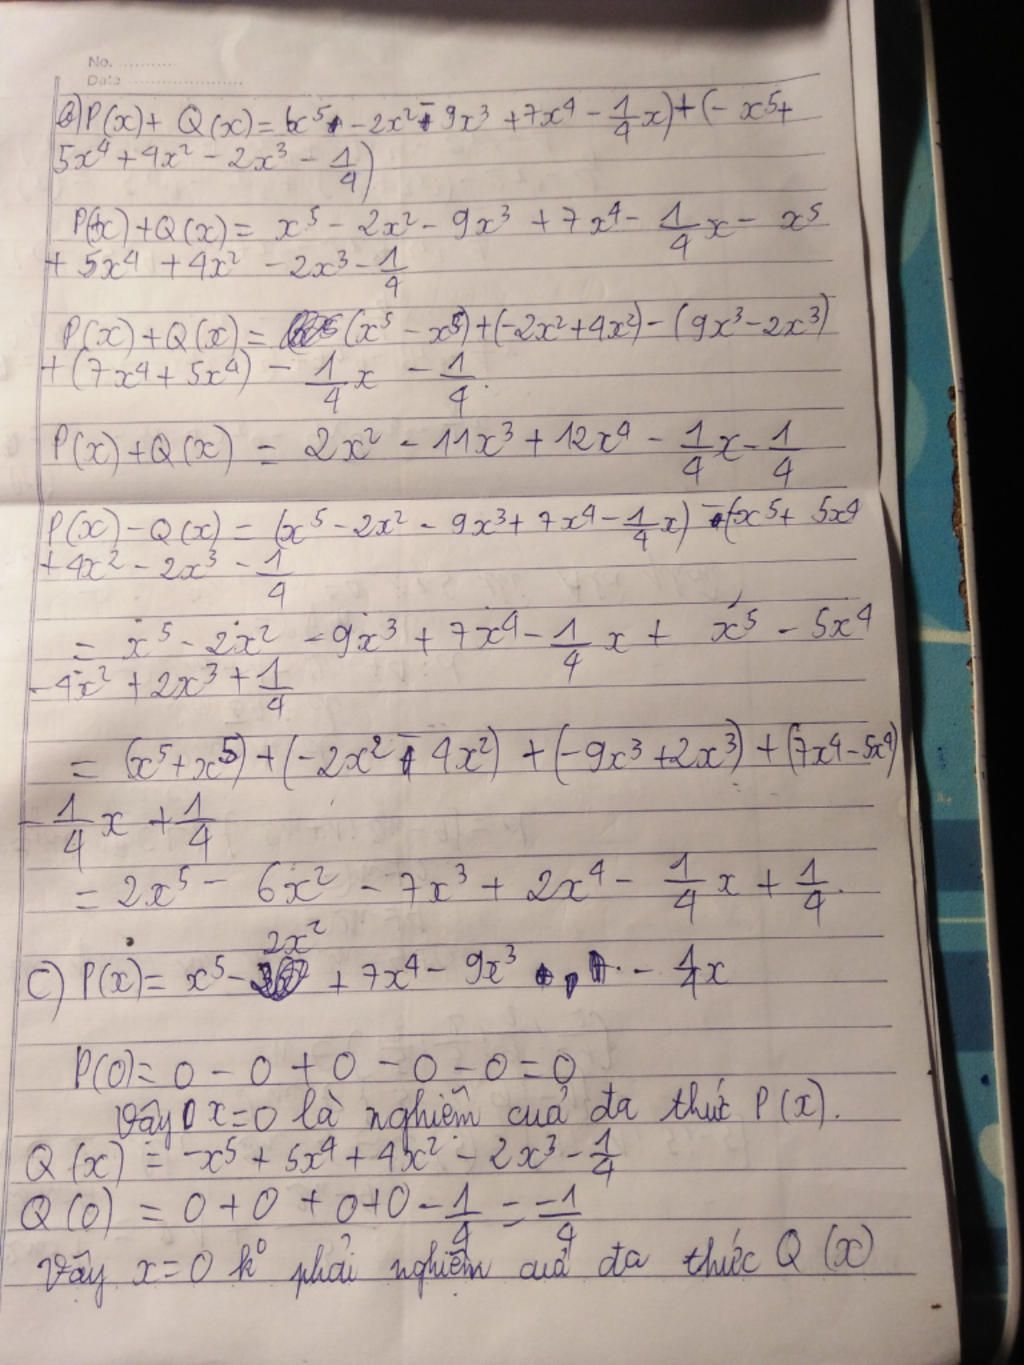 No. ..........
Date ......................
a) P(x) + Q(x) = (x⁵ - 2x² - 9x³ + 7x⁴ - 1/4 x) + (- x⁵ +
5x⁴ + 4x² - 2x³ - 1/4)
P(x) + Q(x) = x⁵ - 2x² - 9x³ + 7x⁴ - 1/4 x - x⁵
+ 5x⁴ + 4x² - 2x³ - 1/4
P(x) + Q(x) = (x⁵ - x⁵) + (-2x² + 4x²) - (9x³ - 2x³)
+ (7x⁴ + 5x⁴) - 1/4 x - 1/4.
P(x) + Q(x) = 2x² - 11x³ + 12x⁴ - 1/4 x - 1/4
P(x) - Q(x) = (x⁵ - 2x² - 9x³ + 7x⁴ - 1/4 x) - (-x⁵ + 5x⁴
+ 4x² - 2x³ - 1/4
= x⁵ - 2x² - 9x³ + 7x⁴ - 1/4 x + x⁵ - 5x⁴
- 4x² + 2x³ + 1/4
= (x⁵ + x⁵) + (-2x² - 4x²) + (-9x³ + 2x³) + (7x⁴ - 5x⁴)
- 1/4 x + 1/4
= 2x⁵ - 6x² - 7x³ + 2x⁴ - 1/4 x + 1/4.
C) P(x) = x⁵ - 2x² + 7x⁴ - 9x³ - 1/4 x
P(0) = 0 - 0 + 0 - 0 - 0 = 0
Vậy x = 0 là nghiệm cuả đa thức P(x).
Q(x) = -x⁵ + 5x⁴ + 4x² - 2x³ - 1/4
Q(0) = 0 + 0 + 0 + 0 - 1/4 = -1/4
Vậy x = 0 k⁰ phải nghiệm cuả đa thức Q(x)